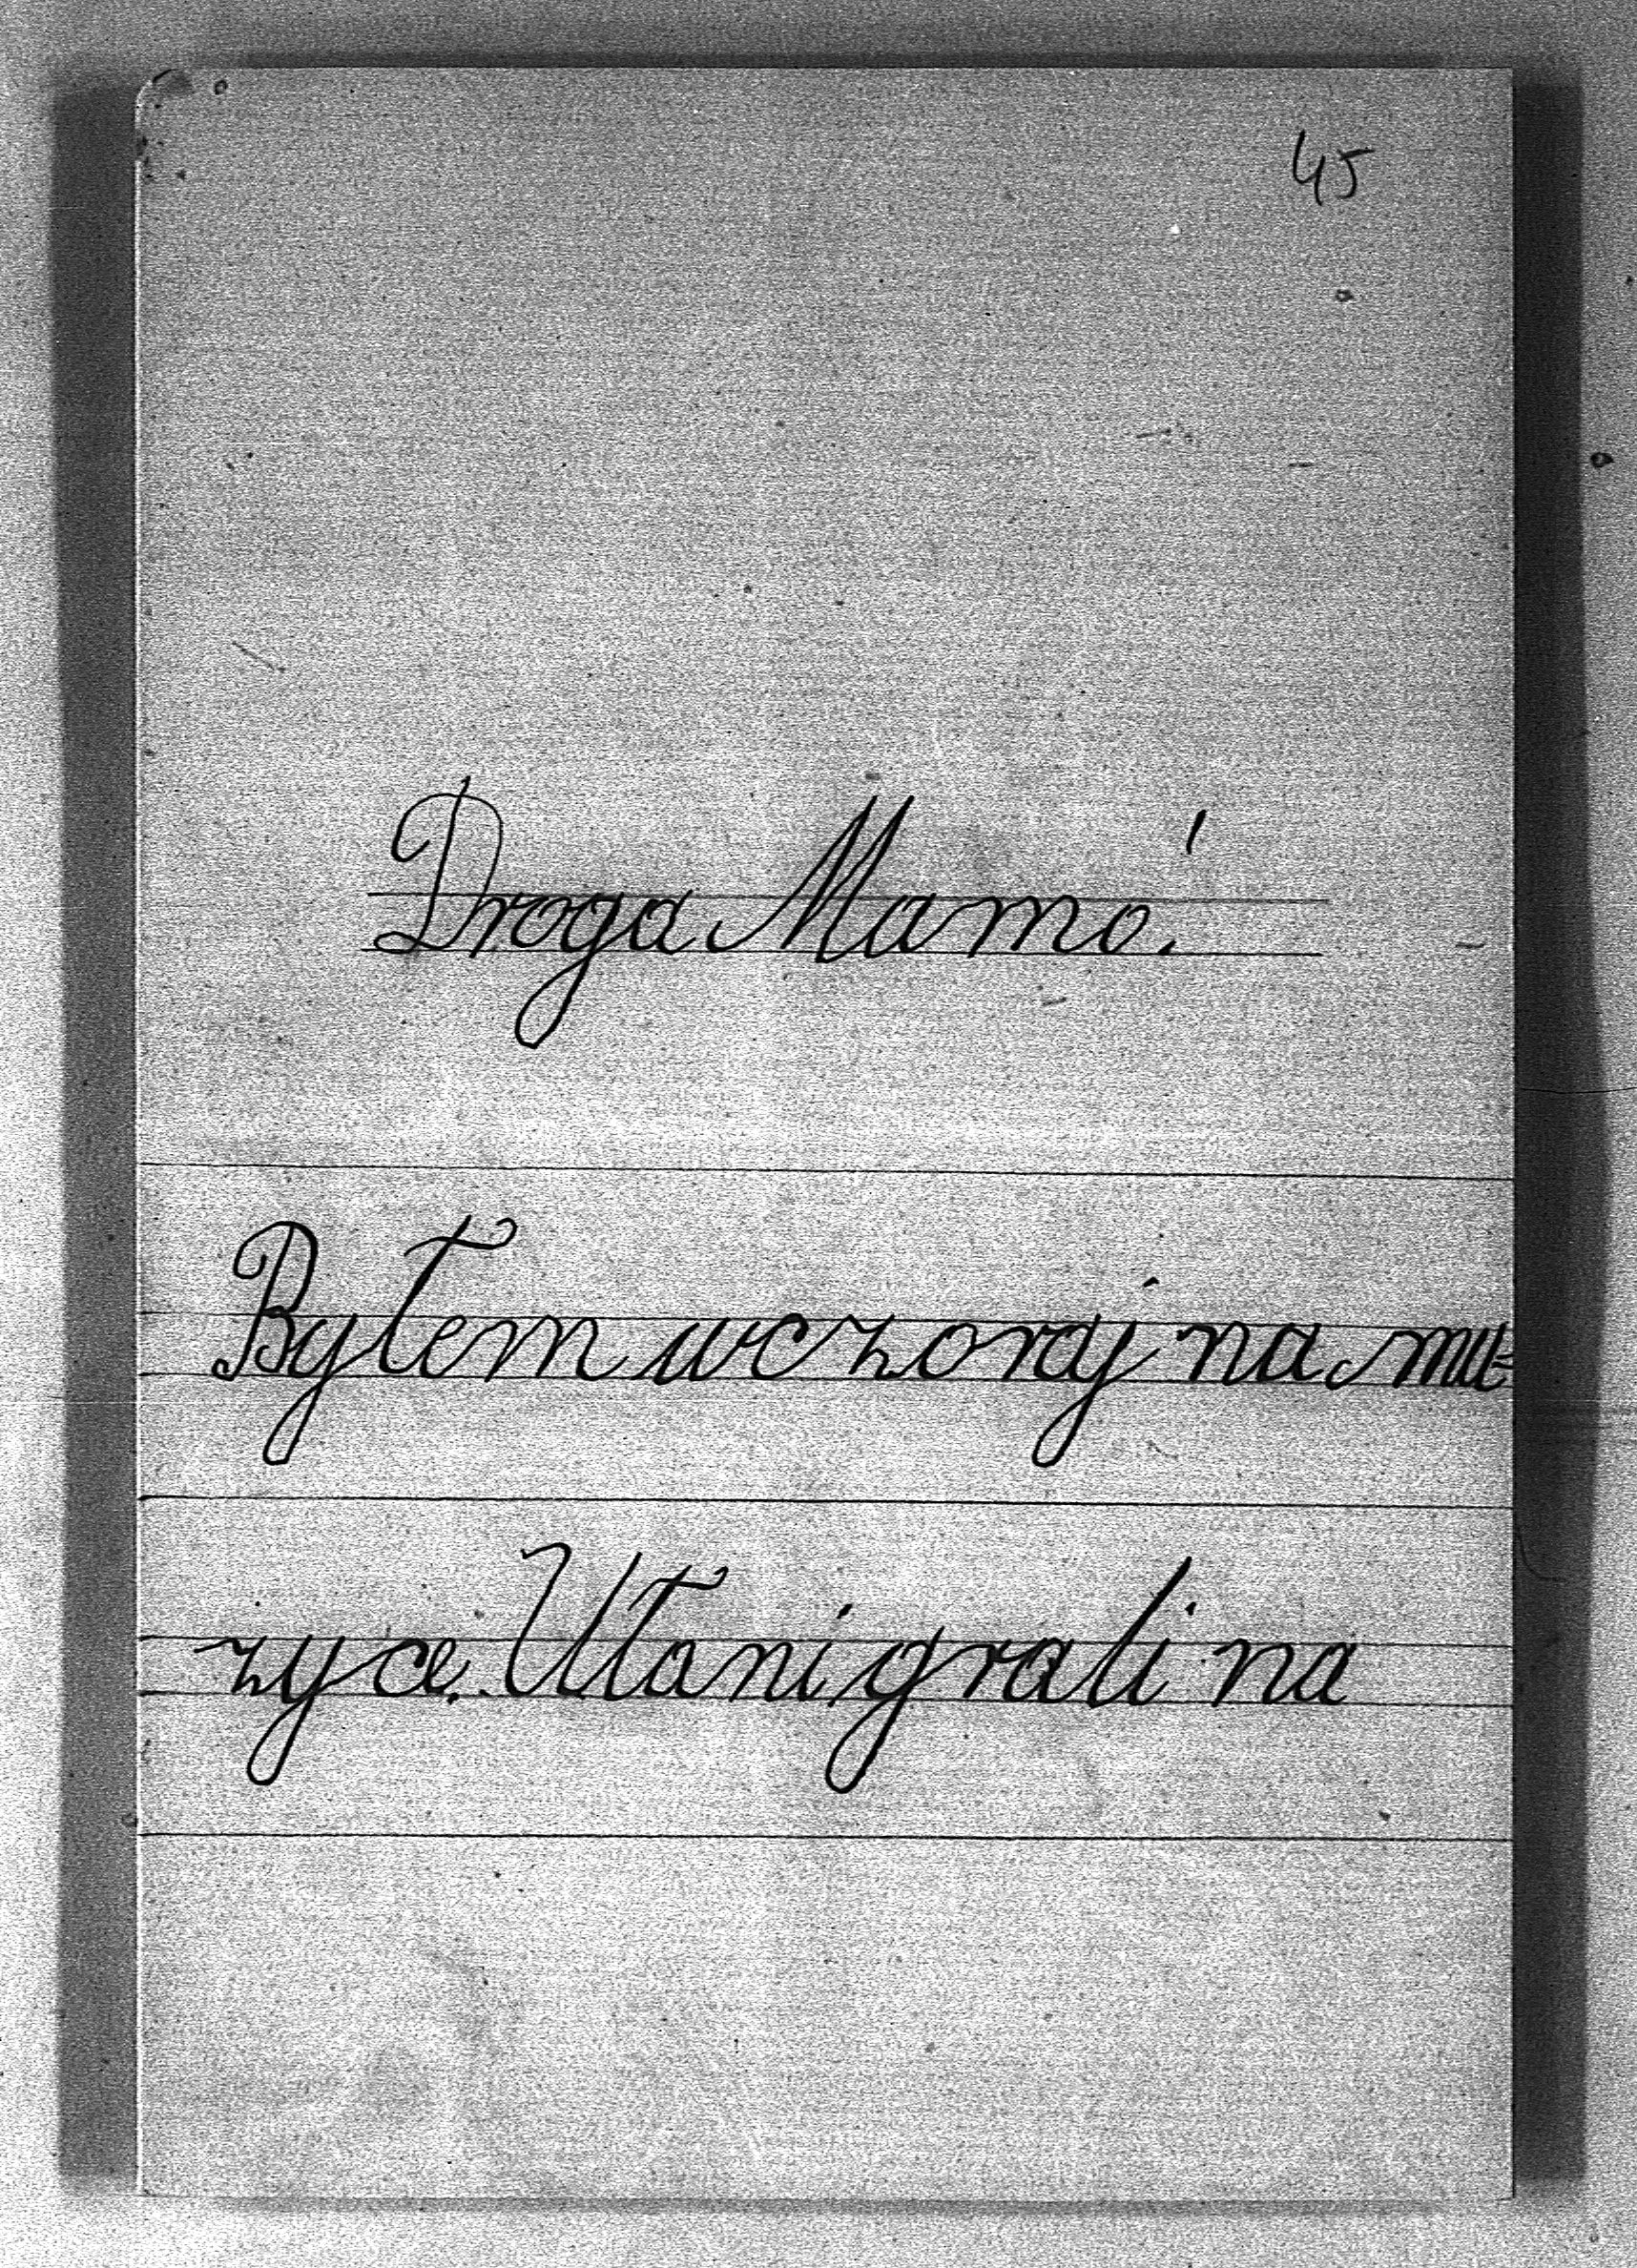 45
Droga Mamo!
Byłem wczoraj na mu=
zyce. Ułani grali na